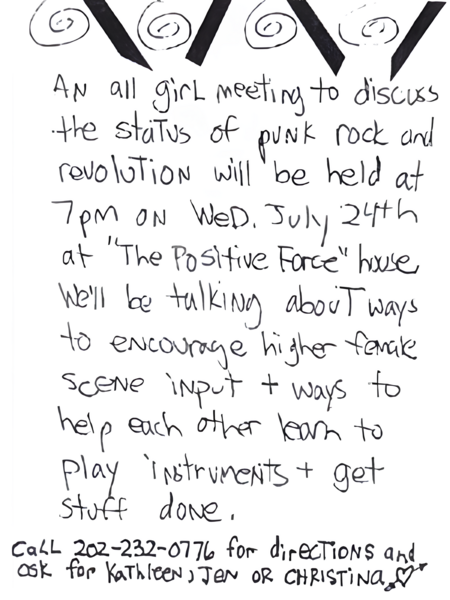 AN all girl meeting to discuss
the status of punk rock and
revolution will be held at
7pm on Wed. July 24th
at "The Positive Force" house
We'll be talking about ways
to encourage higher female
scene input + ways to
help each other learn to
play instruments + get
stuff done.
Call 202-232-0776 for directions and
ask for Kathleen, Jen OR CHRISTINA